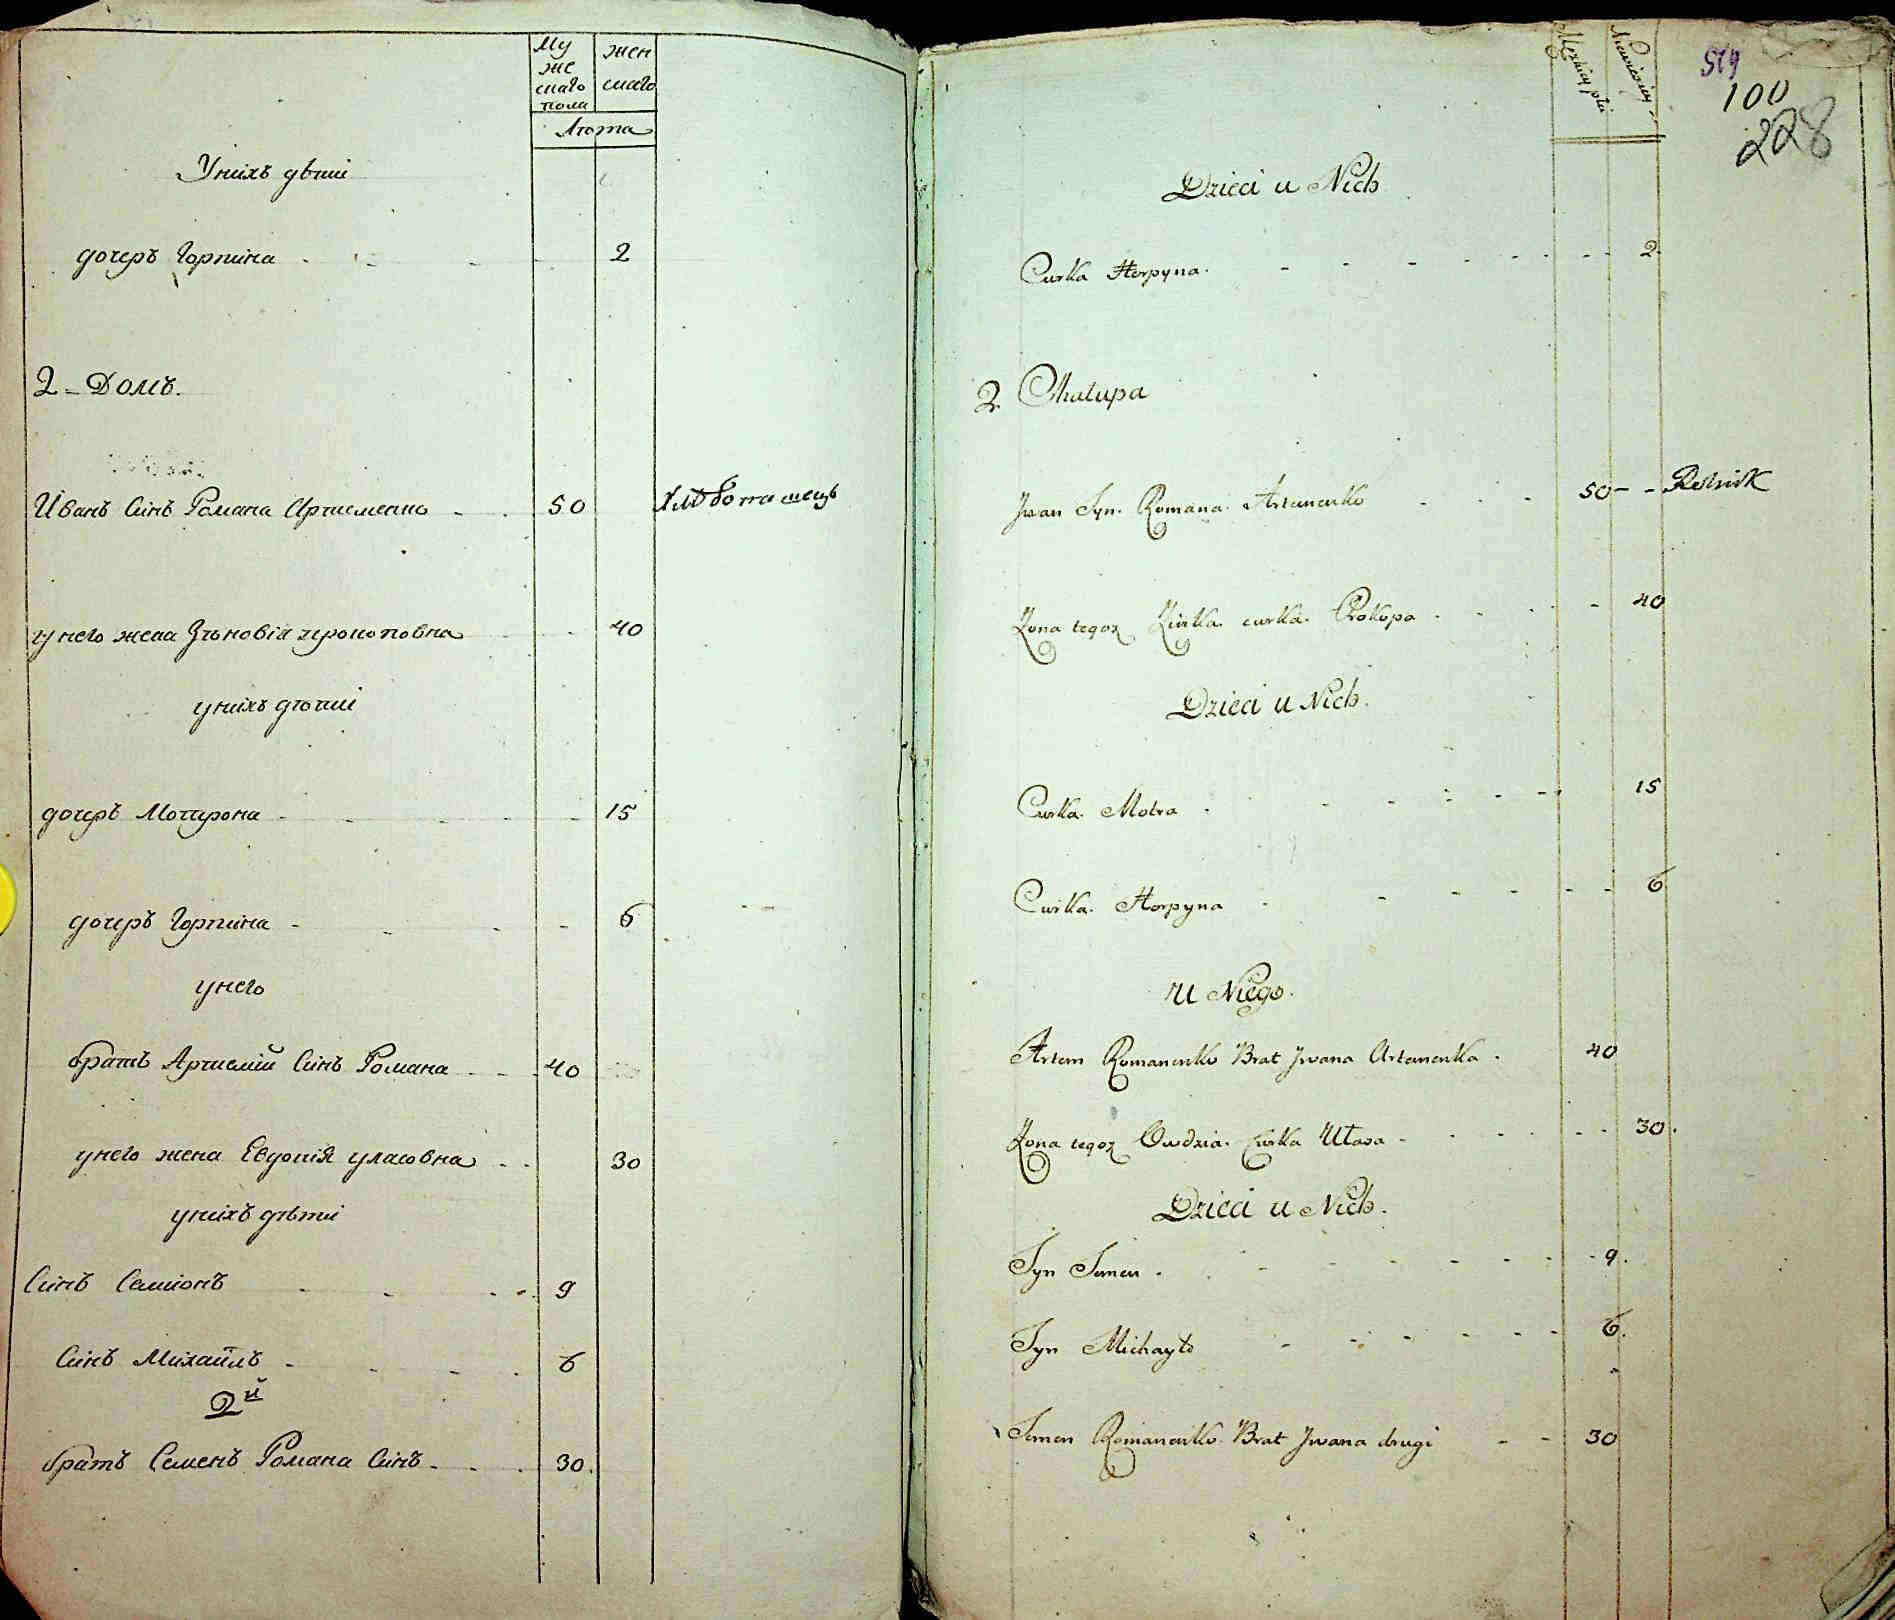 Му
же
скаго
пола
жен
скаго
Лѣта
Унихъ дѣти
дочеръ Горпина 2
2 - Домъ.
Иванъ Синъ Романа Артеменко 50 Хлѣбопашецъ
унего жена Зѣновія прокоповна 40
унихъ дѣти
дочеръ Мотрона 15
дочеръ Горпина 6
унего
братъ Артемій Синъ Романа 40
унего жена Евдокія уласовна 30
унихъ дѣти
Синъ Семіонъ 9
Синъ Михаилъ 6
2й
братъ Семенъ Романа Синъ 30.
Męzkiey płci
Niewieściey
519
100
228
Dzieci u Nich
Curka Horpyna. 2.
2 Chałupa
Jwan Syn. Romana. Artemenko 50 - - Rolnik
Żona tegoż Zinka. curka. Prokopa 40
Dzieci u Nich.
Curka. Motra 15
Curka. Horpyna 6
U Niego.
Artem Romanenko Brat Jwana Artemenka. 40
Żona tegoż Owdzia. Curka Ułasa 30.
Dzieci u Nich.
Syn Semen. 9.
Syn Michayło 6.
Semen Romanenko. Brat Jwana drugi 30